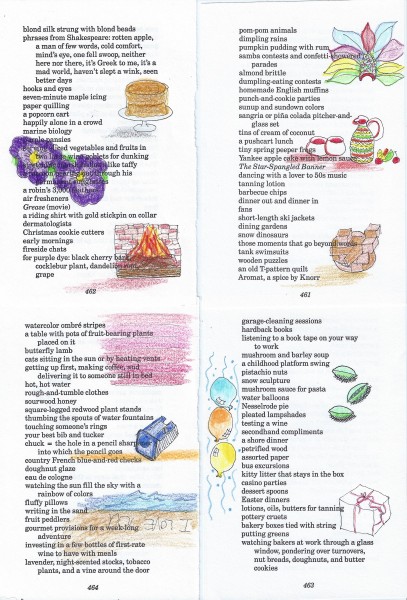 blond silk strung with blond beads
phrases from Shakespeare: rotten apple,
a man of few words, cold comfort,
mind's eye, one fell swoop, neither
here nor there, it's Greek to me, it's a
mad world, haven't slept a wink, seen
better days
hooks and eyes
seven-minute maple icing
paper quilling
a popcorn cart
happily alone in a crowd
marine biology
purple pansies
vegetables and fruits in
goblets for dunking
like taffy
through his
a robin's 3,000
air fresheners
Grease (movie)
a riding shirt with gold stickpin on collar
dermatologists
Christmas cookie cutters
early mornings
fireside chats
for purple dye: black cherry bark,
cocklebur plant, dandelion root,
grape
462
pom-pom animals
dimpling rains
pumpkin pudding with rum
samba contests and confetti-showered
parades
almond brittle
dumpling-eating contests
homemade English muffins
punch-and-cookie parties
sunup and sundown colors
sangria or piña colada pitcher-and-
glass set
tins of cream of coconut
a pushcart lunch
tiny spring peeper frogs
Yankee apple cake with lemon sauce
The Star-Spangled Banner
dancing with a lover to 50s music
tanning lotion
barbecue chips
dinner out and dinner in
fans
short-length ski jackets
dining gardens
snow dinosaurs
those moments that go beyond words
tank swimsuits
wooden puzzles
an old T-pattern quilt
Aromat, a spice by Knorr
461
watercolor ombré stripes
a table with pots of fruit-bearing plants
placed on it
butterfly lamb
cats sitting in the sun or by heating vents
getting up first, making coffee, and
delivering it to someone still in bed
hot, hot water
rough-and-tumble clothes
sourwood honey
square-legged redwood plant stands
thumbing the spouts of water fountains
touching someone's rings
your best bib and tucker
chuck = the hole in a pencil sharpener
into which the pencil goes
country French blue-and-red checks
doughnut glaze
eau de cologne
watching the sun fill the sky with a
rainbow of colors
fluffy pillows
writing in the sand
fruit peddlers
gourmet provisions for a week-long
adventure
investing in a few bottles of first-rate
wine to have with meals
lavender, night-scented stocks, tobacco
plants, and a vine around the door
464
garage-cleaning sessions
hardback books
listening to a book tape on your way
to work
mushroom and barley soup
a childhood platform swing
pistachio nuts
snow sculpture
mushroom sauce for pasta
water balloons
Nesselrode pie
pleated lampshades
testing a wine
secondhand compliments
a shore dinner
petrified wood
assorted paper
bus excursions
kitty litter that stays in the box
casino parties
dessert spoons
Easter dinners
lotions, oils, butters for tanning
pottery crusts
bakery boxes tied with string
putting greens
watching bakers at work through a glass
window, pondering over turnovers,
nut breads, doughnuts, and butter
cookies
463